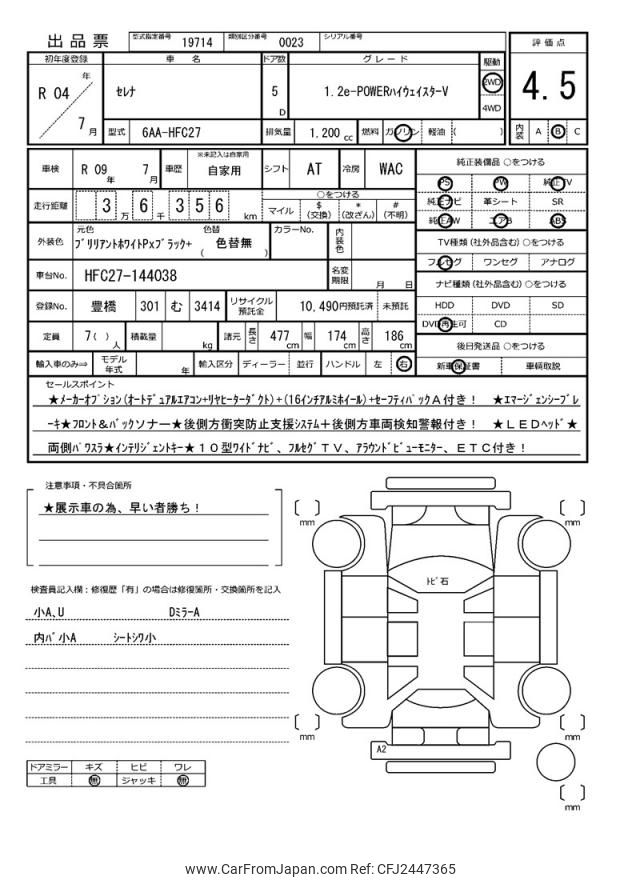 出品票 型式指定番号 19714 類別区分番号 0023 シリアル番号
評価点
4.5
内装 A B C
初年度登録 車名 ドア数 グレード 駆動
R 04 年 7 月
セレナ 5 D 1.2e-POWERハイウェイスターV 2WD 4WD
型式 6AA-HFC27 排気量 1.200 cc 燃料 ガソリン 軽油 ( )
車検 R 09 年 7 月 車歴 ※未記入は自家用 自家用 シフト AT 冷房 WAC
走行距離 3 万 6 千 3 5 6 km
○をつける
マイル $ (交換) * (改ざん) # (不明)
外装色 元色 ブリリアントホワイトPxブラック+ 色替 ( 色替無 ) カラーNo. 内装色
車台No. HFC27-144038 名変期限 月 日
登録No. 豊橋 301 む 3414 リサイクル預託金 10,490円預託済 未預託
定員 7( ) 人 積載量 kg 諸元 長さ 477 cm 幅 174 cm 高さ 186 cm
輸入車のみ⇒ モデル年式 年 輸入区分 ディーラー 並行 ハンドル 左 右
純正装備品 ○をつける
PS PW 純正TV
純正ナビ 革シート SR
純正AW エアB ABS
TV種類(社外品含む) ○をつける
フルセグ ワンセグ アナログ
ナビ種類(社外品含む) ○をつける
HDD DVD SD
DVD再生可 CD
後日発送品 ○をつける
新車保証書 車輌取説
セールスポイント
★メーカーオプション(オートデュアルエアコン+リヤヒーターダクト)+(16インチアルミホイール)+セーフティパックA付き! ★エマージェンシーブレ
ーキ★フロント&バックソナー★後側方衝突防止支援システム+後側方車両検知警報付き! ★LEDヘッド★
両側パワスラ★インテリジェントキー★10型ワイドナビ、フルセグTV、アラウンドビューモニター、ETC付き!
注意事項・不具合箇所
★展示車の為、早い者勝ち!
検査員記入欄:修復歴「有」の場合は修復箇所・交換箇所を記入
小A、U DミラーA
内バ小A シートシワ小
ドアミラー キズ ヒビ ワレ
工具 無 ジャッキ 無
mm
mm
トビ石
mm
mm
A2
mm
www.CarFromJapan.com Ref: CFJ2447365